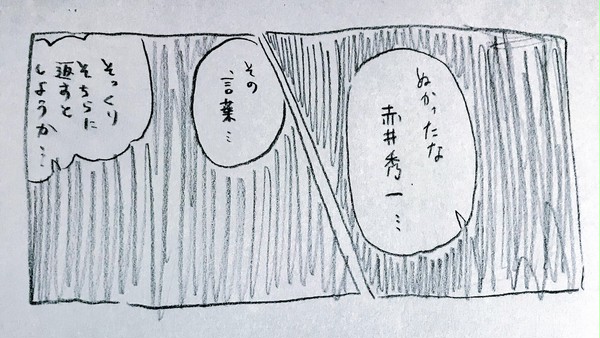 ぬかったな
赤井秀一…
その
言葉…
そっくり
そちらに
返すと
しようか…